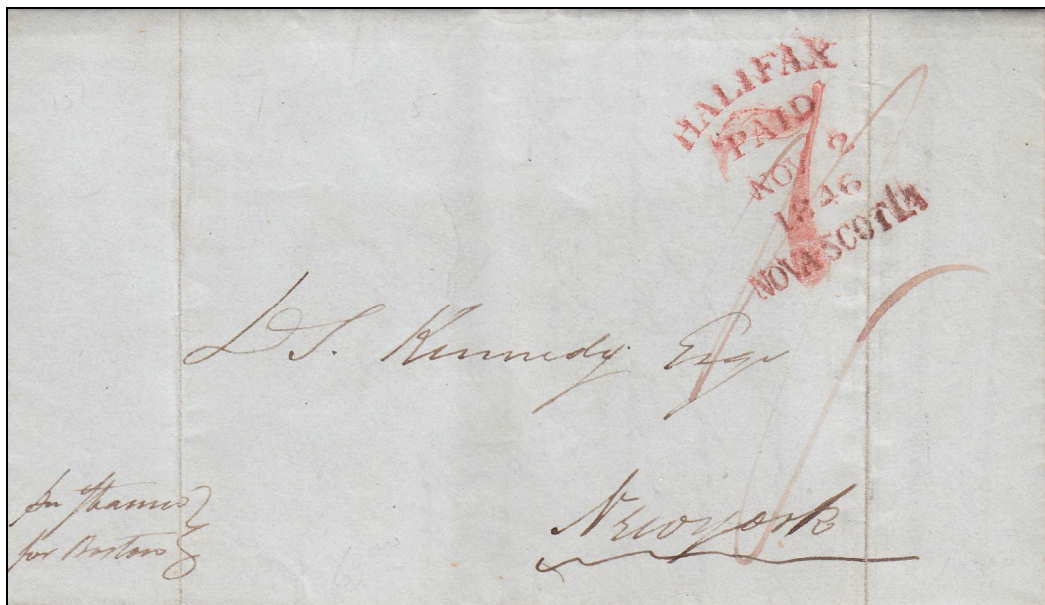 HALIFAX
PAID
NOV 2
1846
NOVA SCOTIA
7
1/
D S. Kennedy Esqr
Newyork
for Boston